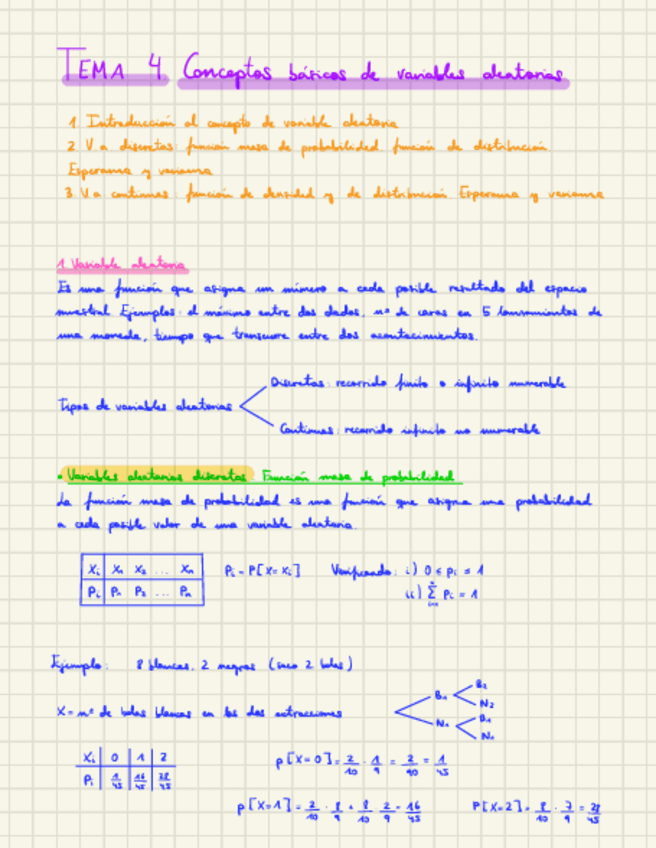 TEMA 4 Conceptos básicos de variables aleatorias
1. Introducción al concepto de variable aleatoria
2. V a discretas: función masa de probabilidad, función de distribución.
Esperanza y varianza
3. V a continuas: función de densidad y de distribución. Esperanza y varianza
1. Variable aleatoria
Es una función que asigna un número a cada posible resultado del espacio
muestral. Ejemplos: el máximo entre dos dados, nº de caras en 5 lanzamientos de
una moneda, tiempo que transcurre entre dos acontecimientos.
Discretas: recorrido finito o infinito numerable
Tipos de variables aleatorias
Continuas: recorrido infinito no numerable
• Variables aleatorias discretas. Función masa de probabilidad
La función masa de probabilidad es una función que asigna una probabilidad
a cada posible valor de una variable aleatoria.
Xi X1 X2 ... Xn Pi = P[X=Xi] Verificando: i) 0 ≤ pi ≤ 1
Pi P1 P2 ... Pn ii) Σ Pi = 1
Ejemplo: 8 blancas, 2 negras (saco 2 bolas)
X = nº de bolas blancas en las dos extracciones
B1 B2
N2
N1 B2
N2
Xi 0 1 2
Pi 1/45 16/45 28/45
p[X=0] = 2/10 · 1/9 = 2/90 = 1/45
p[X=1] = 2/10 · 8/9 + 8/10 · 2/9 = 16/45 P[X=2] = 8/10 · 7/9 = 28/45